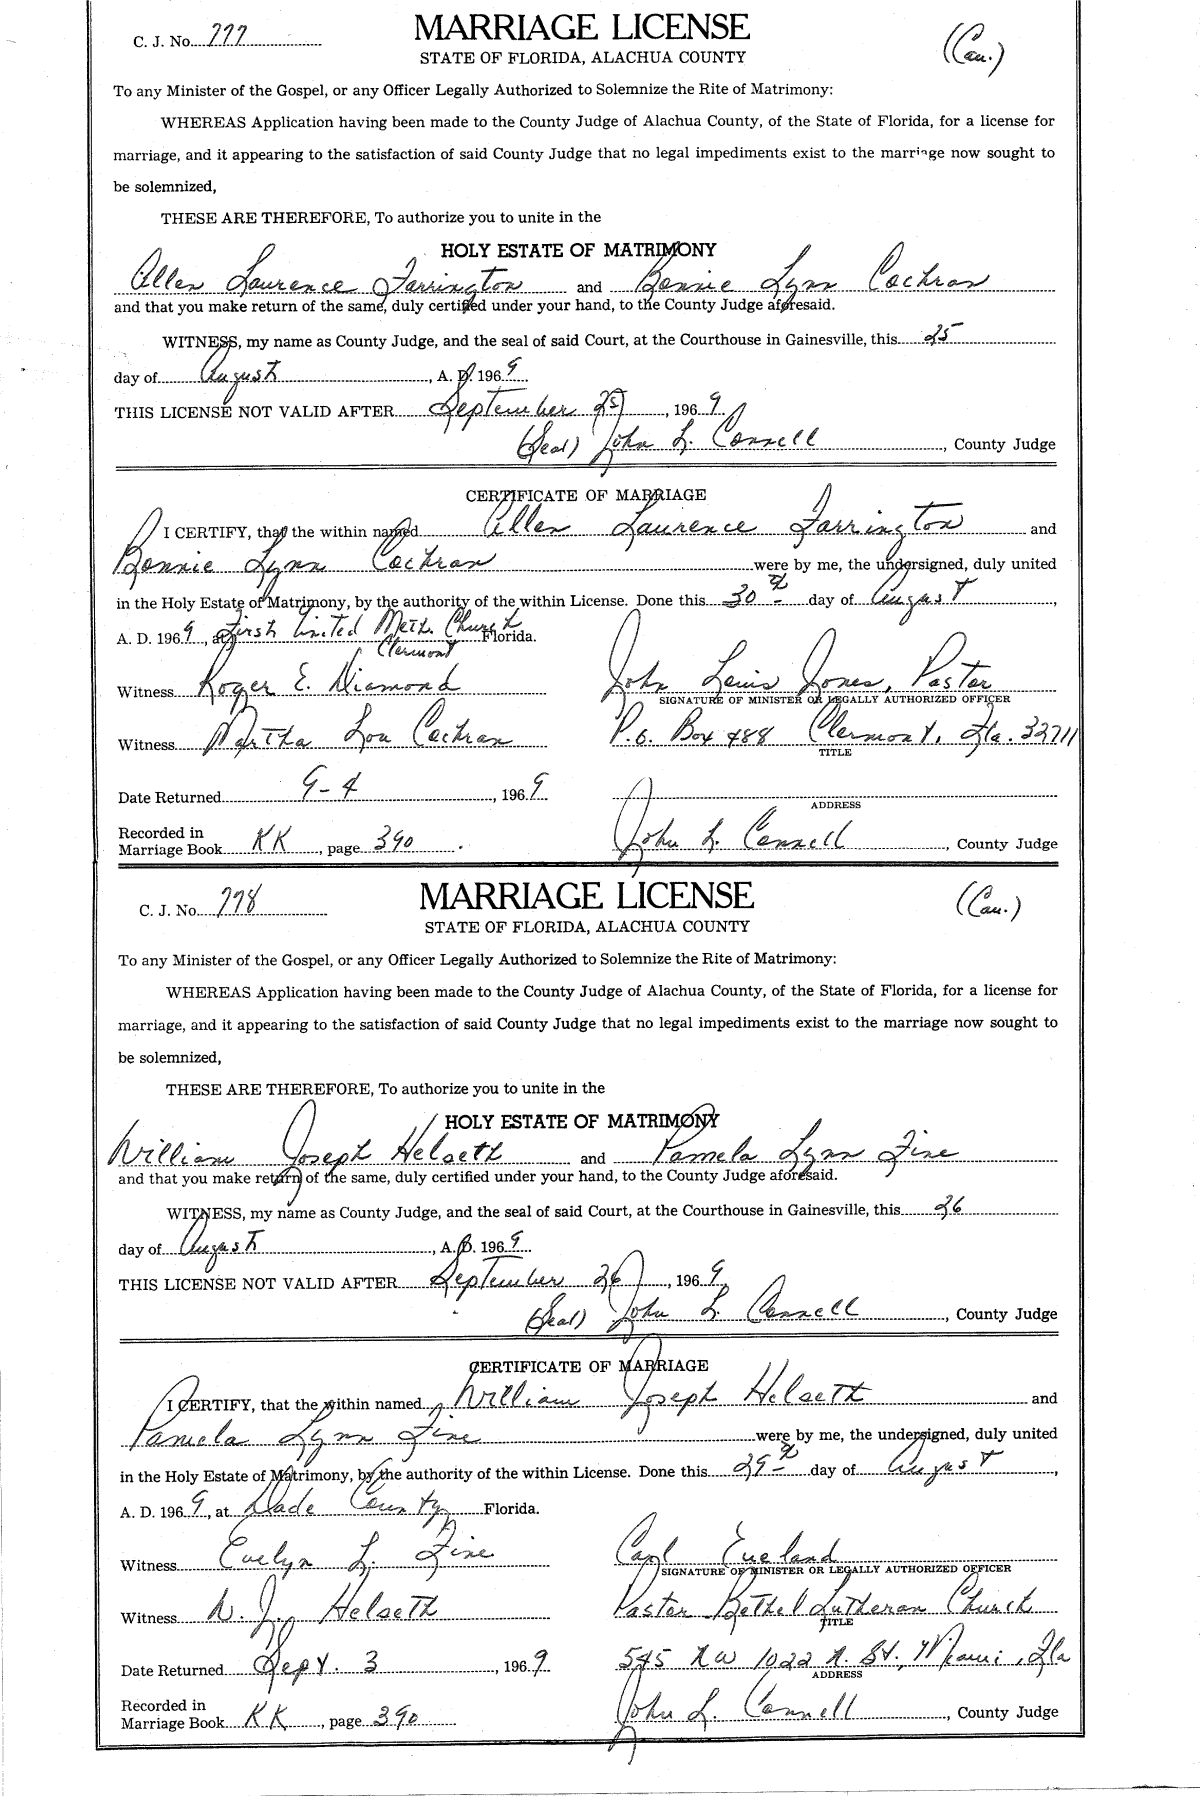 C. J. No. 777
MARRIAGE LICENSE
(Cau.)
STATE OF FLORIDA, ALACHUA COUNTY
To any Minister of the Gospel, or any Officer Legally Authorized to Solemnize the Rite of Matrimony:
WHEREAS Application having been made to the County Judge of Alachua County, of the State of Florida, for a license for
marriage, and it appearing to the satisfaction of said County Judge that no legal impediments exist to the marriage now sought to
be solemnized,
THESE ARE THEREFORE, To authorize you to unite in the
HOLY ESTATE OF MATRIMONY
Allen Laurence Farrington and Bonnie Lynn Cochran
and that you make return of the same, duly certified under your hand, to the County Judge aforesaid.
WITNESS, my name as County Judge, and the seal of said Court, at the Courthouse in Gainesville, this 25
day of August, A. D. 1969
THIS LICENSE NOT VALID AFTER September 25, 1969.
(Seal) John L. Connell, County Judge
CERTIFICATE OF MARRIAGE
I CERTIFY, that the within named Allen Laurence Farrington and
Bonnie Lynn Cochran were by me, the undersigned, duly united
in the Holy Estate of Matrimony, by the authority of the within License. Done this 30th day of August,
A. D. 1969, at First United Meth. Church Florida.
Clermont
Witness Roger E. Diamond John Lewis Jones, Pastor
SIGNATURE OF MINISTER OR LEGALLY AUTHORIZED OFFICER
Witness Martha Lou Cochran P.O. Box 488 Clermont, Fla. 32711
TITLE
Date Returned 9-4, 1969
ADDRESS
Recorded in
Marriage Book KK, page 390. John L. Connell, County Judge
C. J. No. 778
MARRIAGE LICENSE
(Cau.)
STATE OF FLORIDA, ALACHUA COUNTY
To any Minister of the Gospel, or any Officer Legally Authorized to Solemnize the Rite of Matrimony:
WHEREAS Application having been made to the County Judge of Alachua County, of the State of Florida, for a license for
marriage, and it appearing to the satisfaction of said County Judge that no legal impediments exist to the marriage now sought to
be solemnized,
THESE ARE THEREFORE, To authorize you to unite in the
HOLY ESTATE OF MATRIMONY
William Joseph Helseth and Pamela Lynn Fine
and that you make return of the same, duly certified under your hand, to the County Judge aforesaid.
WITNESS, my name as County Judge, and the seal of said Court, at the Courthouse in Gainesville, this 26
day of August, A. D. 1969
THIS LICENSE NOT VALID AFTER September 26, 1969.
(Seal) John L. Connell, County Judge
CERTIFICATE OF MARRIAGE
I CERTIFY, that the within named William Joseph Helseth and
Pamela Lynn Fine were by me, the undersigned, duly united
in the Holy Estate of Matrimony, by the authority of the within License. Done this 29th day of August,
A. D. 1969, at Dade County Florida.
Witness Evelyn L. Fine Carl Eueland
SIGNATURE OF MINISTER OR LEGALLY AUTHORIZED OFFICER
Witness W. J. Helseth Pastor Bethel Lutheran Church
TITLE
Date Returned Sept. 3, 1969 545 NW 1022 N. St., Miami, Fla
ADDRESS
Recorded in
Marriage Book KK, page 390 John L. Connell, County Judge